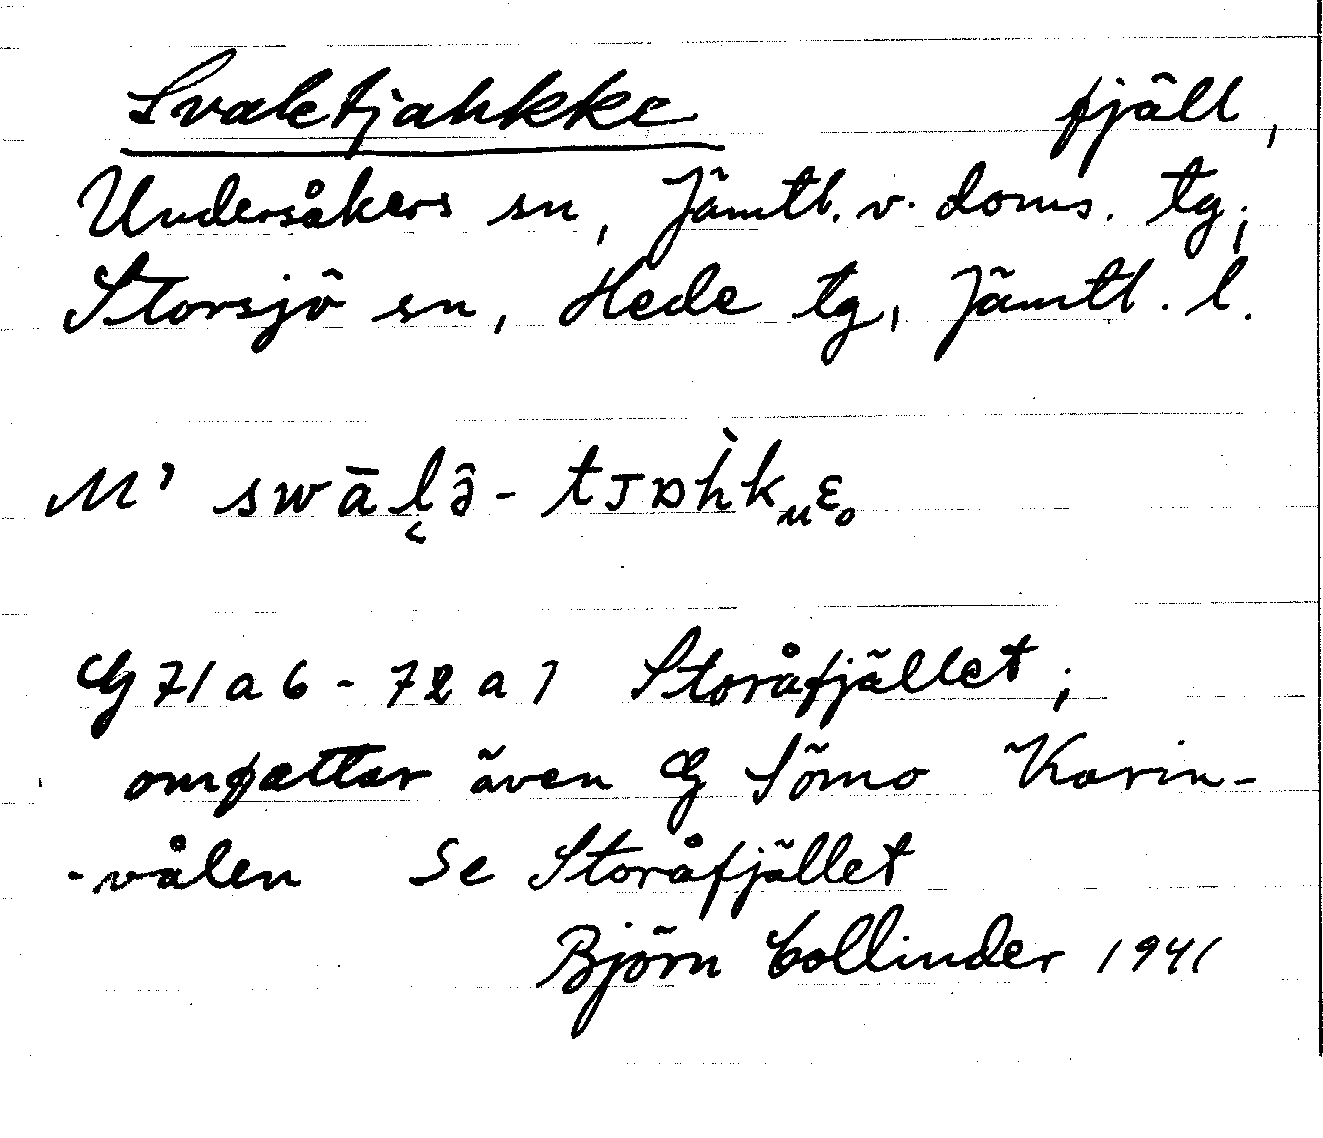 Svaletjahkke fjäll,
Undersåkers sn, Jämtl. v. doms. tg;
Storsjö sn, Hede tg, Jämtl. l.
M' swāl̨ə̂- tᴊᴅh̀kᵤɛₒ
G 71 a 6 - 72 a 1 Storåfjället;
omfattar även G Sömo Karin-
-vålen Se Storåfjället
Björn Collinder 1941